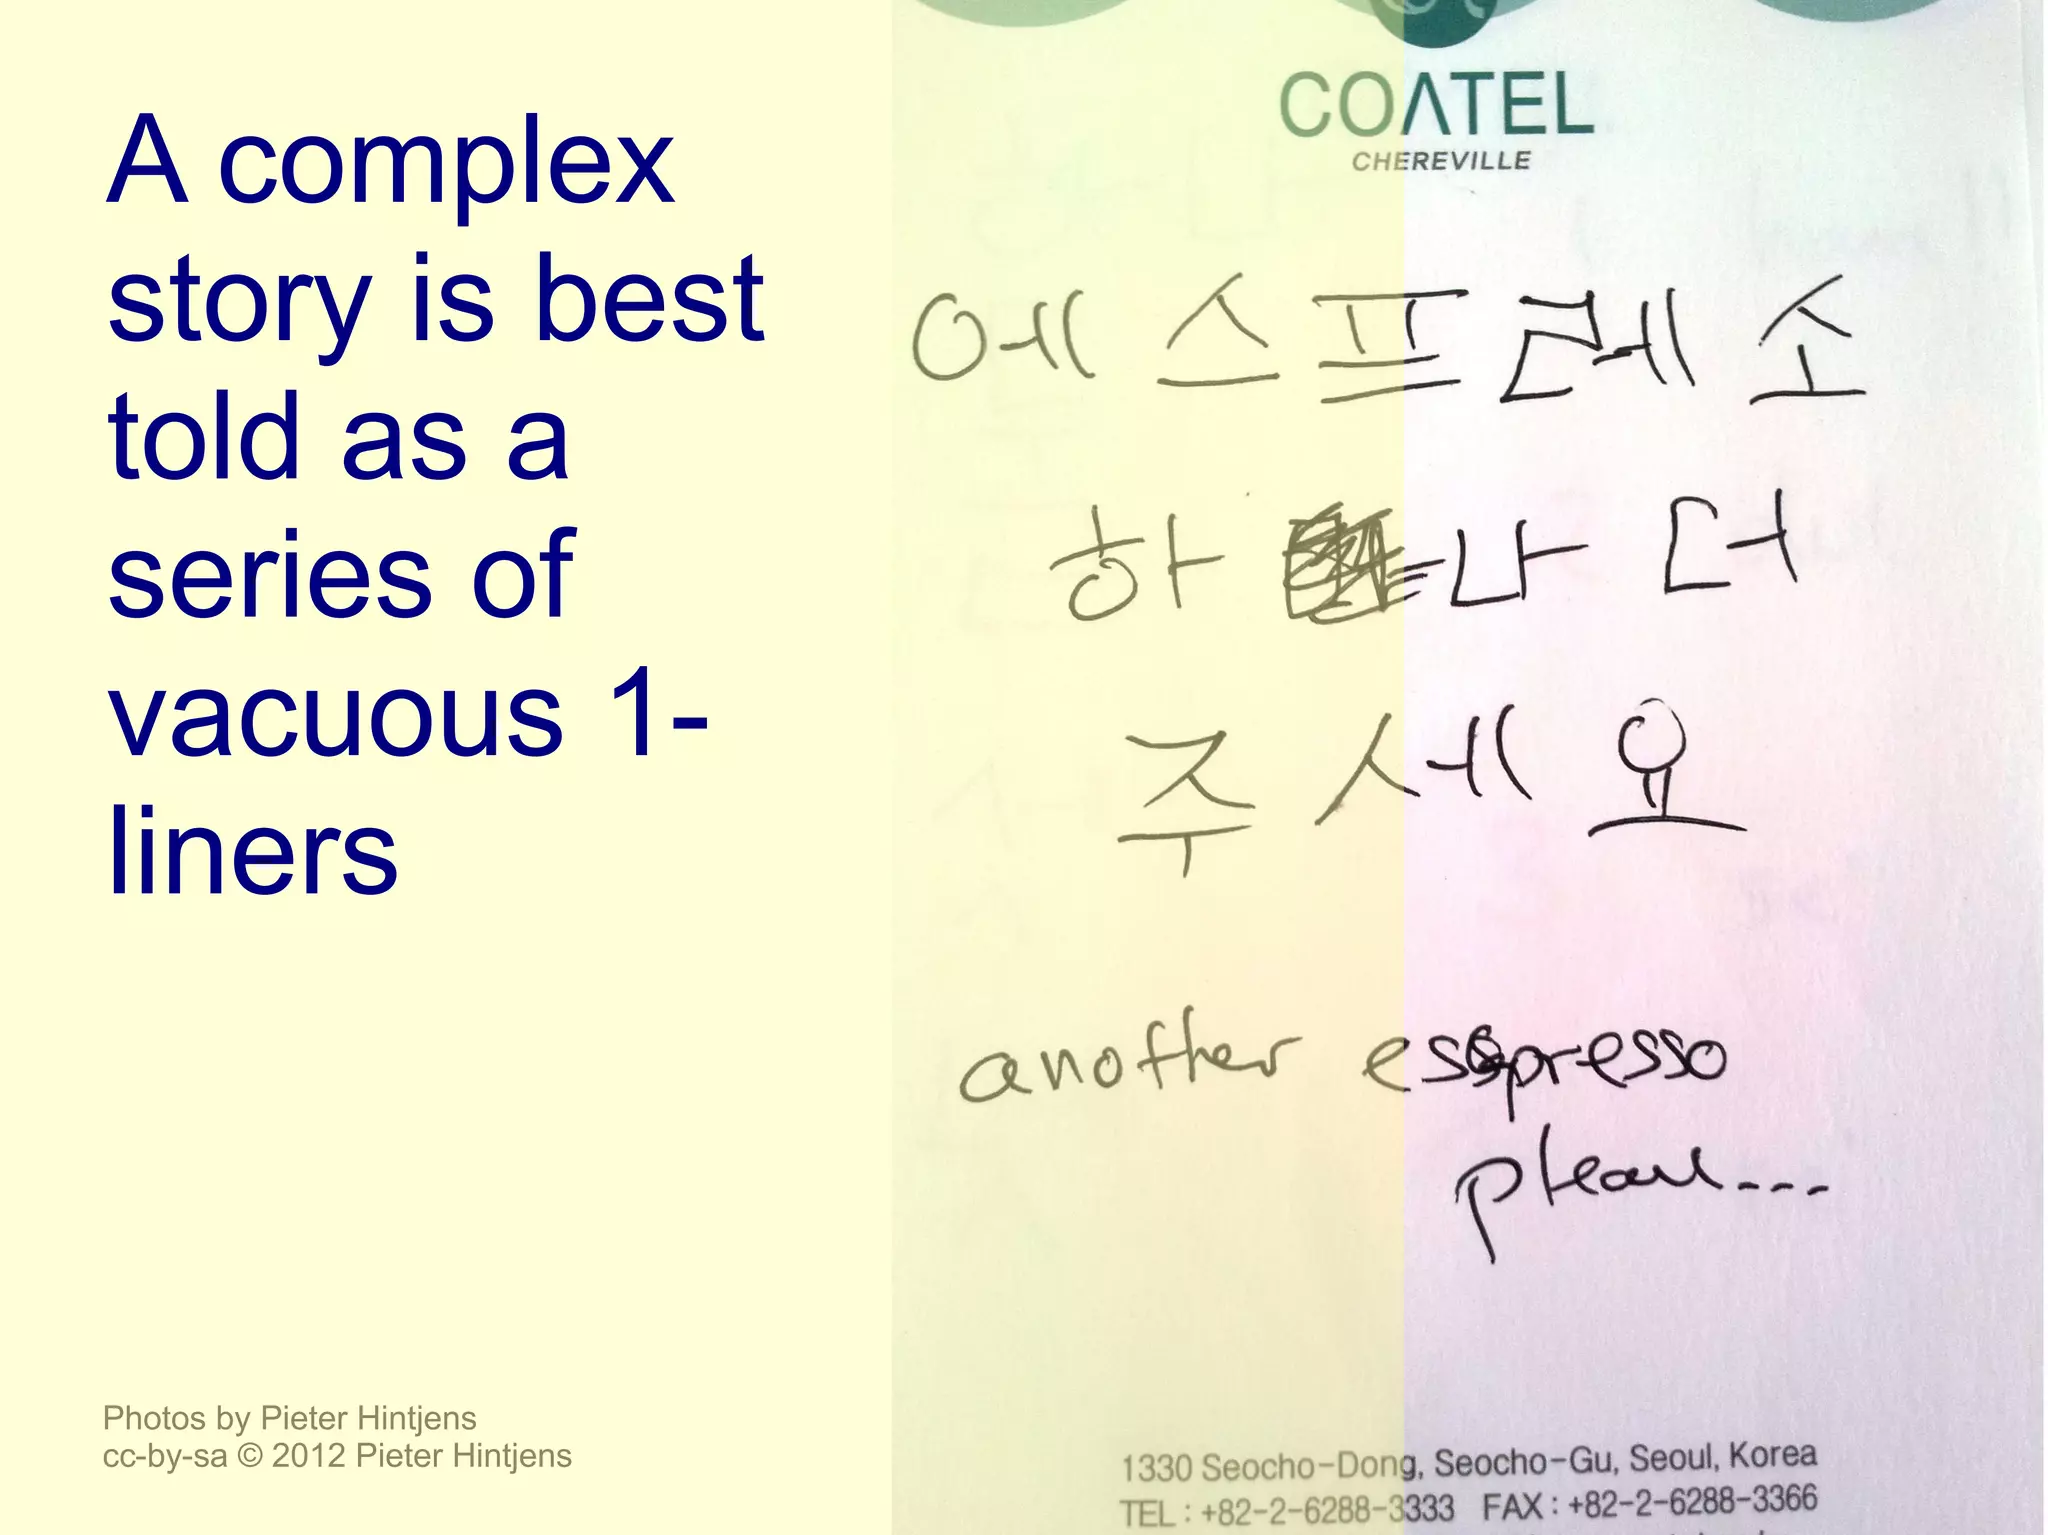 A complex
story is best
told as a
series of
vacuous 1-
liners
Photos by Pieter Hintjens
cc-by-sa © 2012 Pieter Hintjens
COATEL
CHEREVILLE
에 스 프 레 소
하 나 더
주 세 요
another espresso
please...
1330 Seocho-Dong, Seocho-Gu, Seoul, Korea
TEL : +82-2-6288-3333 FAX : +82-2-6288-3366